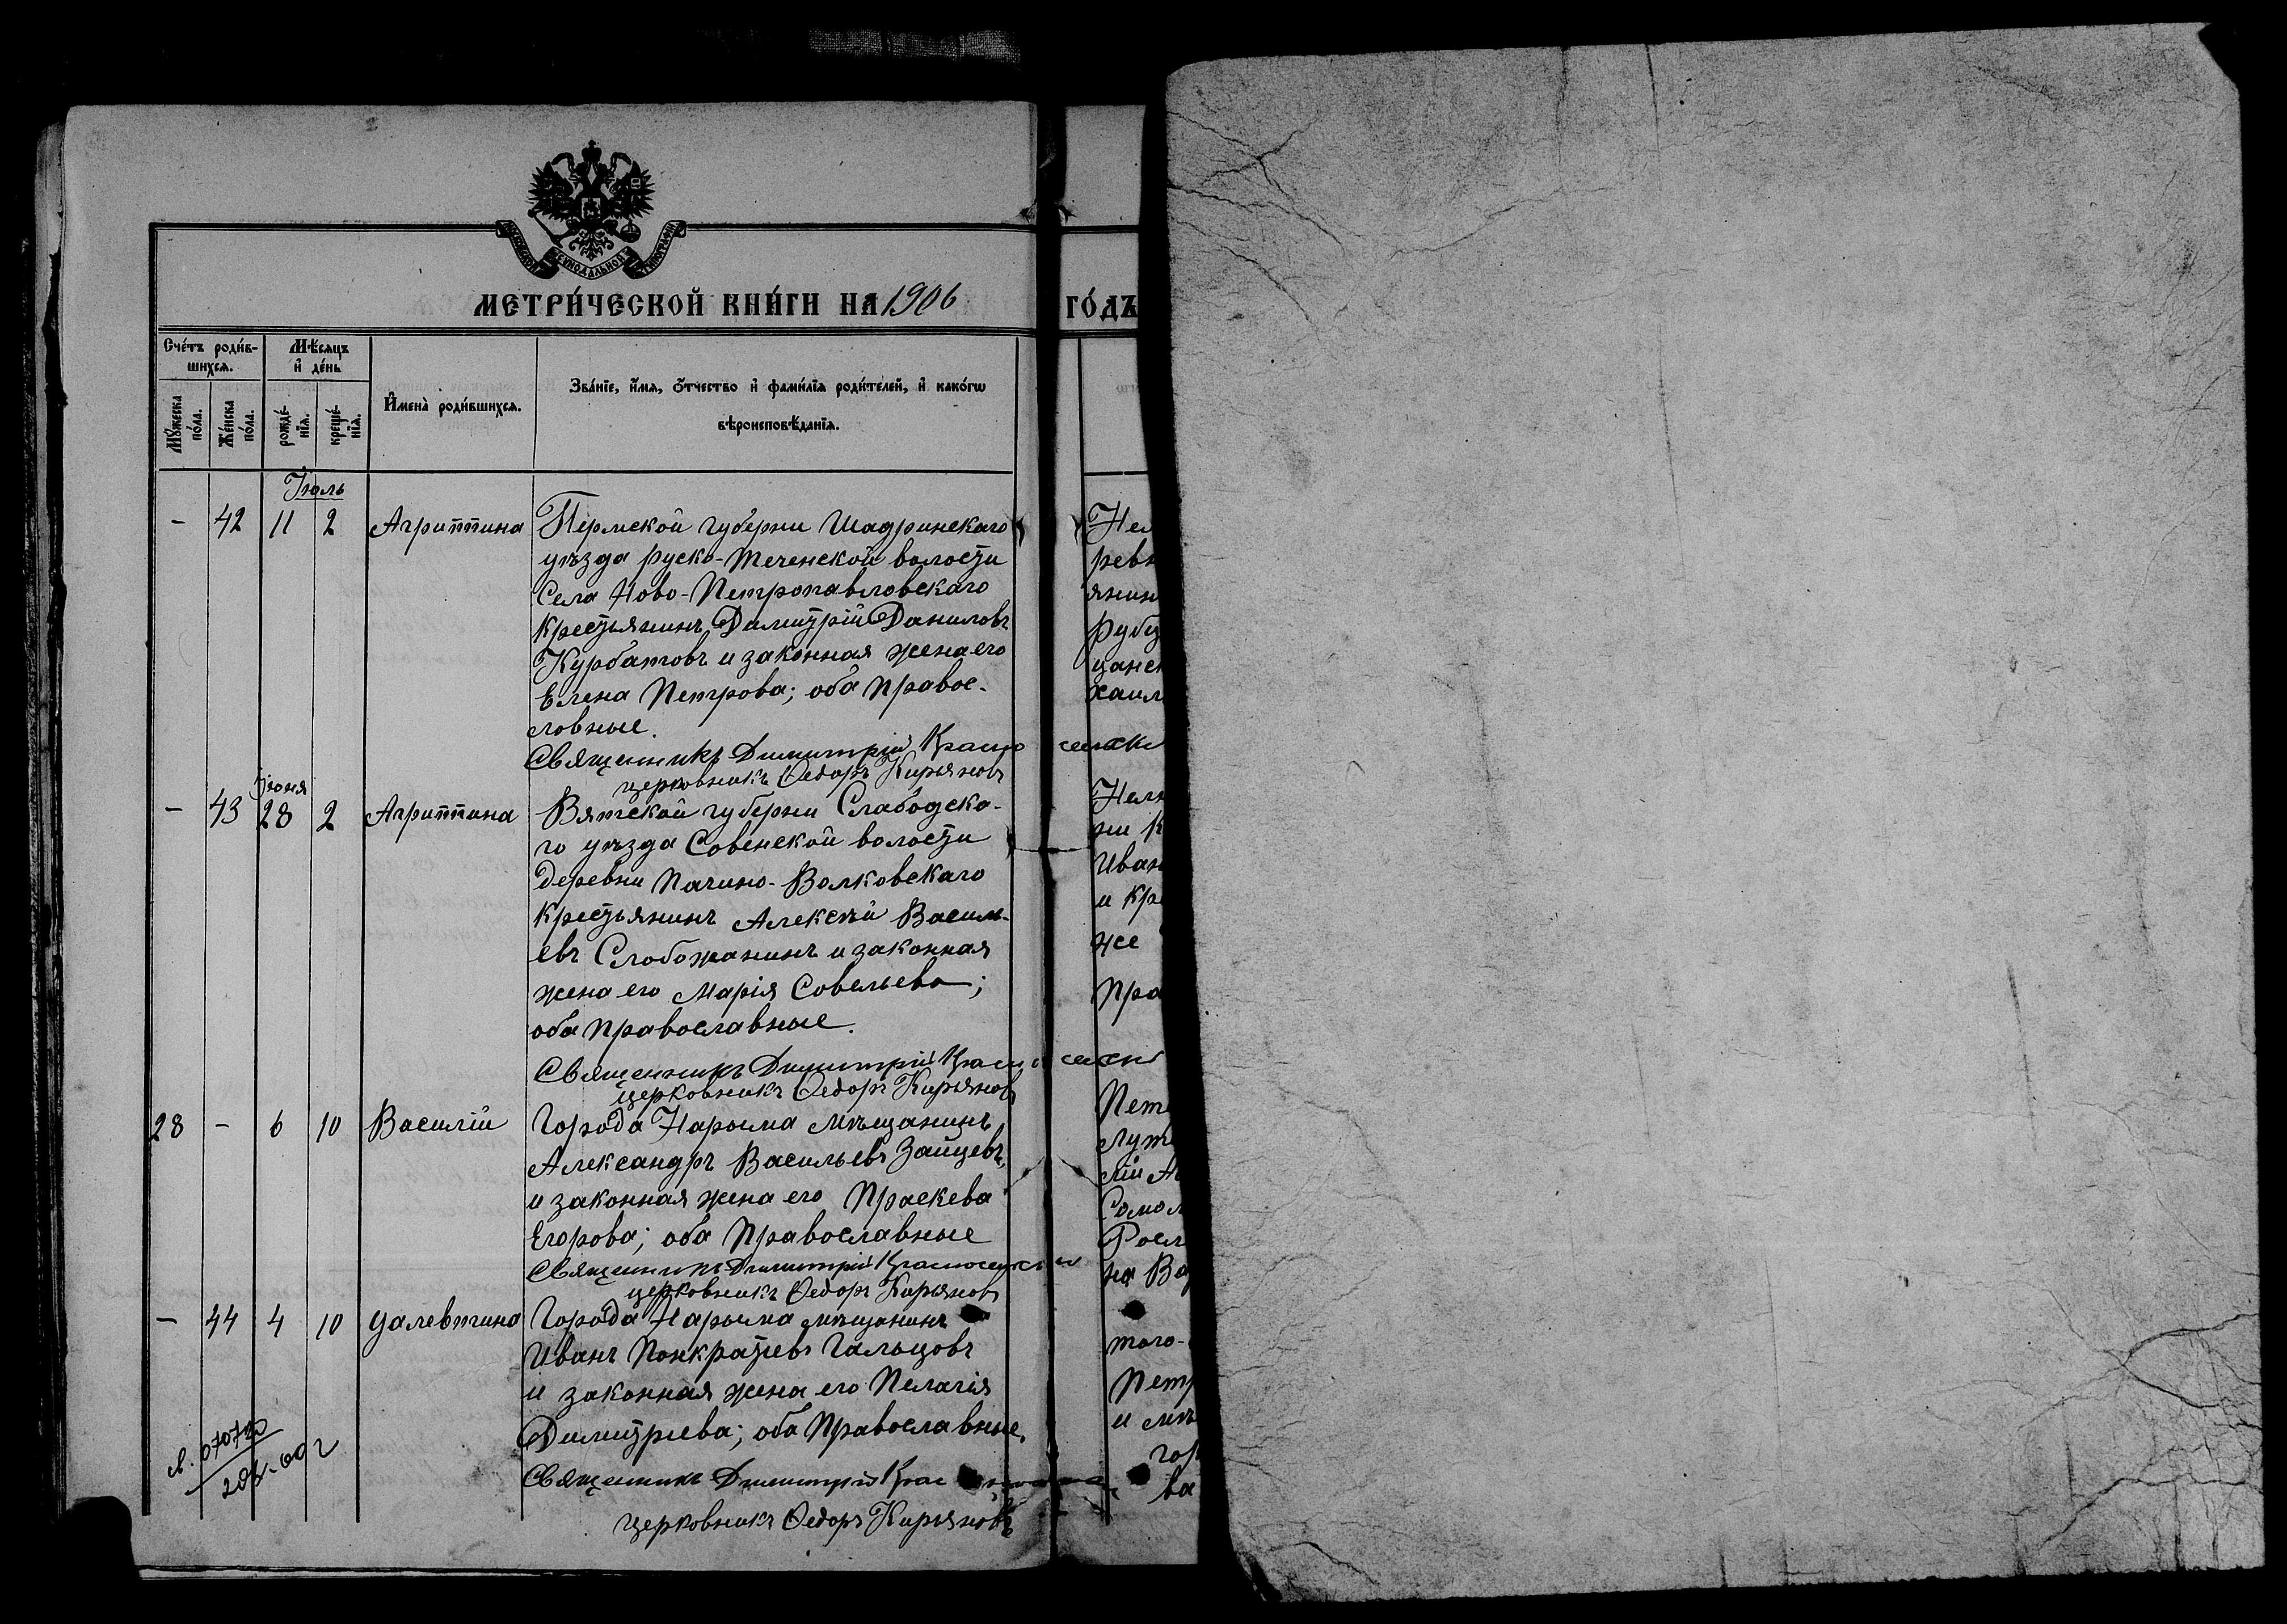 МОСКОВСКОЙ СѴНОДАЛЬНОЙ ТИПОГРАФІИ
МЕТРИ́ЧЕСКОЙ КНИ́ГИ НА 1906 ГО́ДЪ
Сче́тъ роди́в-
шихсѧ.
Мѣ́сѧцъ
и҆ де́нь
Мꙋ́жеска
по́ла.
Же́нска
по́ла.
рожде́-
нїѧ.
креще́-
нїѧ.
И҆мена̀ роди́вшихсѧ.
Зва́нїе, и҆́мѧ, ѻ҆́тчество и҆ фами́лїѧ роди́телей, и҆ како́гѡ
вѣроисповѣ́данїѧ.
Іюль
- 42 11 2 Агриппина Пермской губерни Шадринскаго
уѣзда руско-Теченской волости
Села Ново-Петропавловскаго
крестьянинъ Димитрій Даниловъ
Курбатовъ и законная жена его
Елена Петрова; оба правос-
ловные.
Священникъ Димитрій Красносельскій
церковникъ Ѳедоръ Кирьяновъ
Іюня
- 43 28 2 Агриппина Вятской губерни Слабодска-
го уѣзда Совенской волости
деревни Пачино-Волковскаго
крестьянинъ Алексѣй Василь-
евъ Слобожанинъ и законная
жена его Марія Совельева;
оба православные.
Священникъ Димитрій
церковникъ Ѳедоръ Кирьяновъ
28 - 6 10 Василій Города Нарыма мѣщанинъ
Александръ Васильевъ Зайцевъ,
и законная жена его Праскева
Егорова; оба Православные
Священникъ Димитрій
церковникъ Ѳедоръ Кирьяновъ
- 44 4 10 Уалевтина Города Нарыма мѣщанинъ
Иванъ Понкратьевъ Гальцовъ
и законная жена его Пелагія
Димитриева; оба Православные,
Священникъ Димитрій
церковникъ Ѳедоръ Кирьяновъ
Нел
ревн
янин
Рубц
цанс
хаил
Нел
ни К
Иван
и кр
же
Пра
Пет
Лут
лій А
Самол
Росл
на Ва
того-
Петр
и мѣ
гор
ва